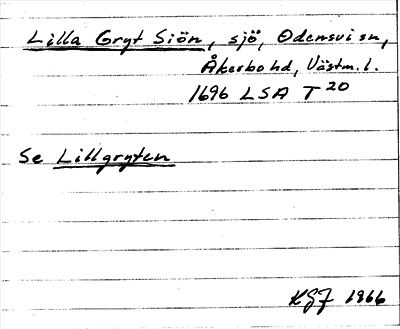 Lilla Gryt Siön, sjö, Odensvi sn,
Åkerbo hd, Västm. l.
1696 LSA T 20
Se Lillgryten
KGJ 1966